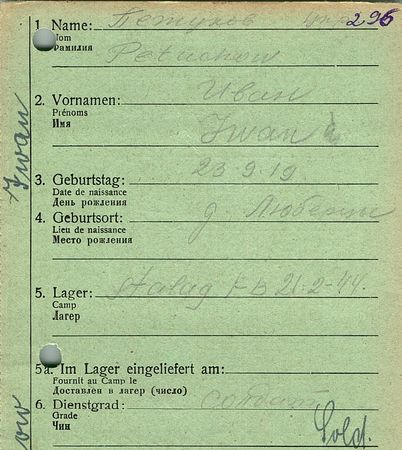 1. Name: Петухов 296
Nom
Фамилия
Petuchow
2. Vornamen: Иван
Prénoms
Имя
Iwan
3. Geburtstag: 23.9.19
Date de naissance
День рождения
4. Geburtsort: д. Любени
Lieu de naissance
Место рождения
5. Lager: Stalag 21-2-44.
Camp
Лагер
5a. Im Lager eingeliefert am:
Fournit au Camp le
Доставлен в лагер (число)
6. Dienstgrad: солдат
Grade
Чин
Sold.
Iwan
ow